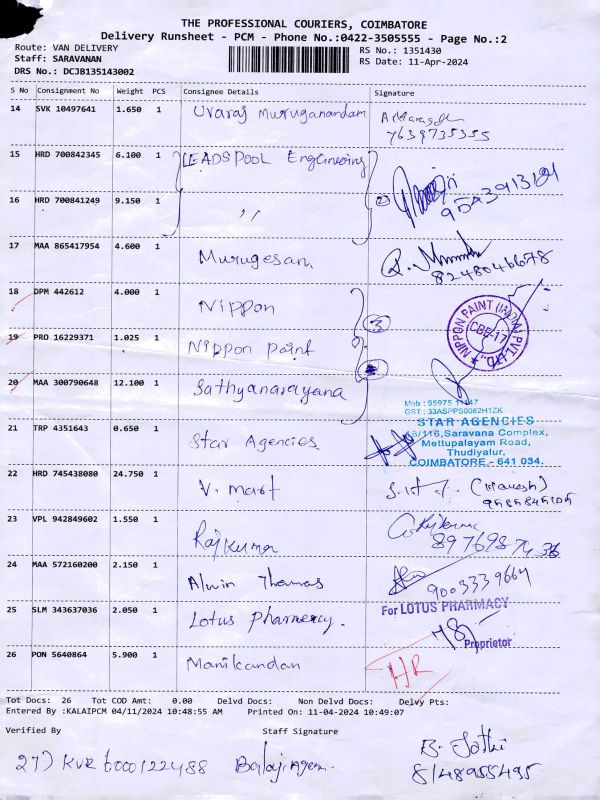 THE PROFESSIONAL COURIERS, COIMBATORE
Delivery Runsheet - PCM - Phone No.:0422-3505555 - Page No.:2
Route: VAN DELIVERY
RS No.: 1351430
Staff: SARAVANAN
RS Date: 11-Apr-2024
DRS No.: DCJB135143002
S No Consignment No Weight PCS Consignee Details Signature
14 SVK 10497641 1.650 1 Uvaraj Muruganandam
7639735355
15 HRD 700842345 6.100 1 LEADSPOOL Engineering
16 HRD 700841249 9.150 1 ,, (2)
17 MAA 865417954 4.600 1 Murugesan
8248046678
18 DPM 442612 4.000 1 Nippon
(3)
NIPPON PAINT (INDIA) PVT. LTD.
CBE-17
19 PRO 16229371 1.025 1 Nippon Paint
20 MAA 300790648 12.100 1 Sathyanarayana
GST : 33ASPPS0082H1ZK
21 TRP 4351643 0.650 1 Star Agencies
STAR AGENCIES
8/116,Saravana Complex,
Mettupalayam Road,
Thudiyalur,
COIMBATORE - 641 034.
22 HRD 745438080 24.750 1 V. Mart
23 VPL 942849602 1.550 1 Rajkumar
24 MAA 572160200 2.150 1 Alwin Thomas
9003339664
25 SLM 343637036 2.050 1 Lotus Pharmercy.
For LOTUS PHARMACY
Proprietor
26 PON 5640864 5.900 1 Manikandan
HR
Tot Docs: 26 Tot COD Amt: 0.00 Delvd Docs: Non Delvd Docs: Delvy Pts:
Entered By :KALAIPCM 04/11/2024 10:48:55 AM Printed On: 11-04-2024 10:49:07
Verified By Staff Signature
27) KVR 6000122488 Balaji Agen. B. Jothi
8148955495